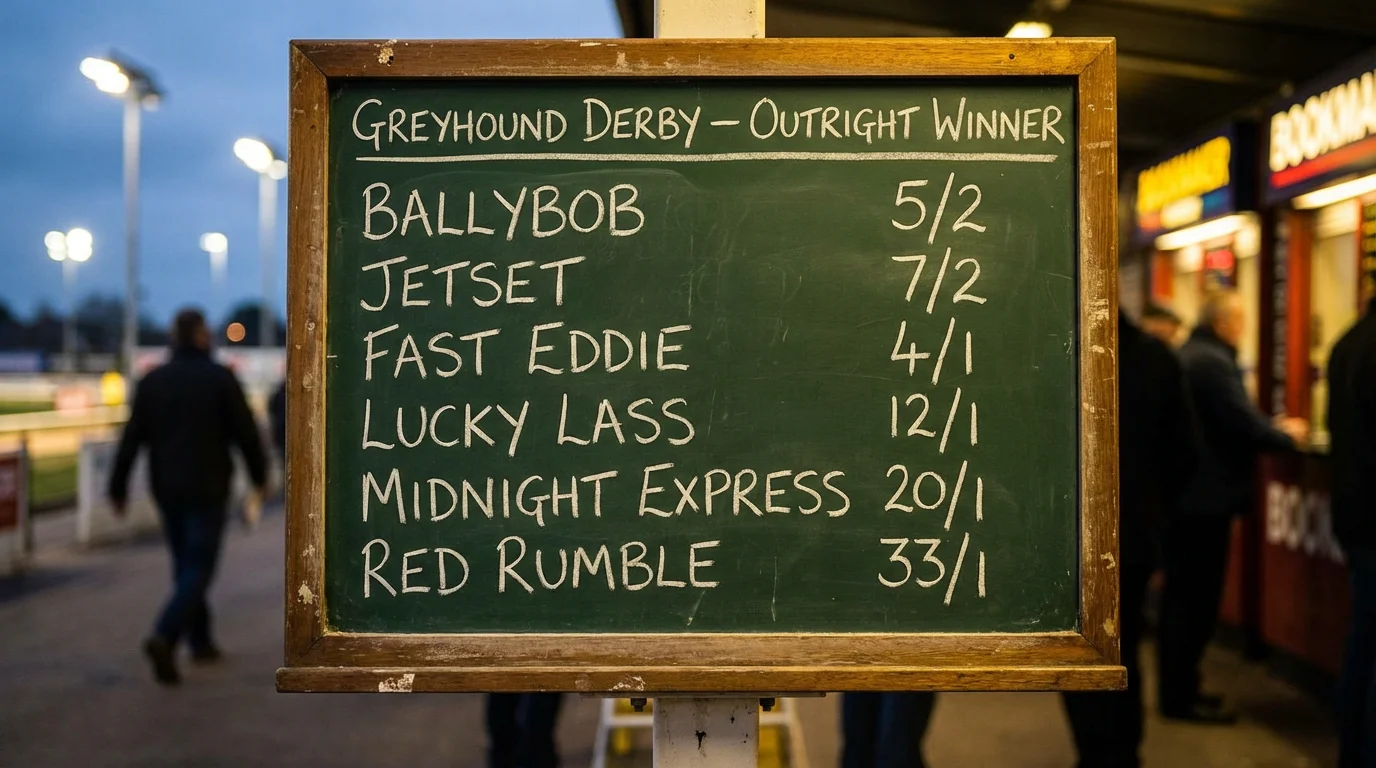 GREYHOUND DERBY – OUTRIGHT WINNER
BALLYBOB 5/2
JETSET 7/2
FAST EDDIE 4/1
LUCKY LASS 12/1
MIDNIGHT EXPRESS 20/1
RED RUMBLE 33/1